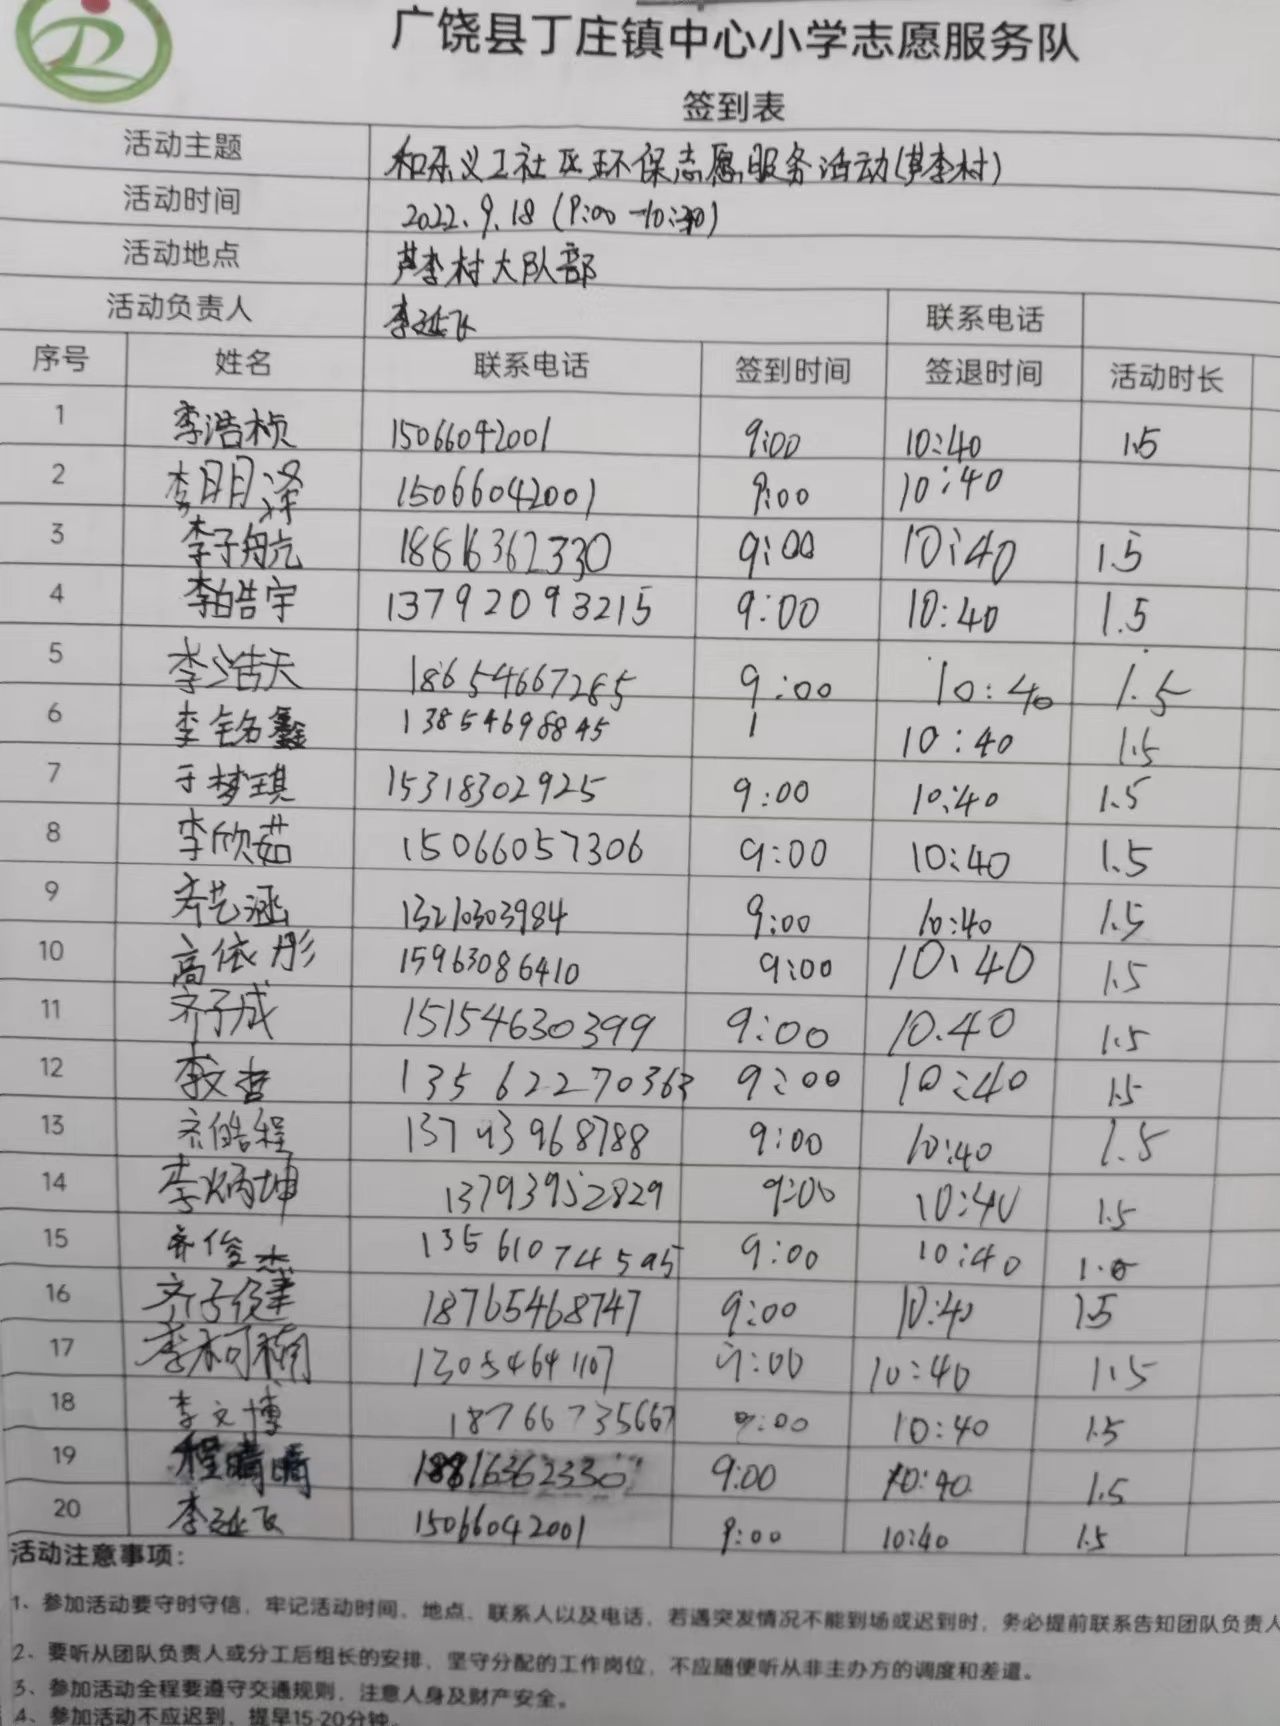 广饶县丁庄镇中心小学志愿服务队
签到表
活动主题 和乐义工社区环保志愿服务活动(芦李村)
活动时间 2022.9.18 (9:00-10:30)
活动地点 芦李村大队部
活动负责人 李延飞 联系电话
序号 姓名 联系电话 签到时间 签退时间 活动时长
1 李浩桢 15066042001 9:00 10:40 1.5
2 李明泽 15066042001 9:00 10:40
3 李子航 18816362330 9:00 10:40 1.5
4 李皓宇 13792093215 9:00 10:40 1.5
5 李浩天 18654667265 9:00 10:40 1.5
6 李铭鑫 13854698845 1 10:40 1.5
7 于梦琪 15318302925 9:00 10:40 1.5
8 李欣茹 15066057306 9:00 10:40 1.5
9 齐艺涵 13210303984 9:00 10:40 1.5
10 高依彤 15963086410 9:00 10:40 1.5
11 齐子成 15154630399 9:00 10.40 1.5
12 李文哲 13562270363 9:00 10:40 1.5
13 齐皓程 9:00 10:40 1.5
14 李炳坤 13793952829 9:00 10:40 1.5
15 齐俊杰 13561074595 9:00 10:40
16 齐子健 18765468747 9:00 10:40 1.5
17 李柯楠 13054641107 9:00 10:40 1.5
18 李文博 18766735667 9:00 10:40 1.5
19 程晴晴 18816362330 9:00 10:40 1.5
20 李延飞 15066042001 9:00 10:40 1.5
活动注意事项：
1、参加活动要守时守信，牢记活动时间、地点、联系人以及电话，若遇突发情况不能到场或迟到时，务必提前联系告知团队负责人
2、要听从团队负责人或分工后组长的安排，坚守分配的工作岗位，不应随便听从非主办方的调度和差遣。
3、参加活动全程要遵守交通规则，注意人身及财产安全。
4、参加活动不应迟到，提早15-20分钟